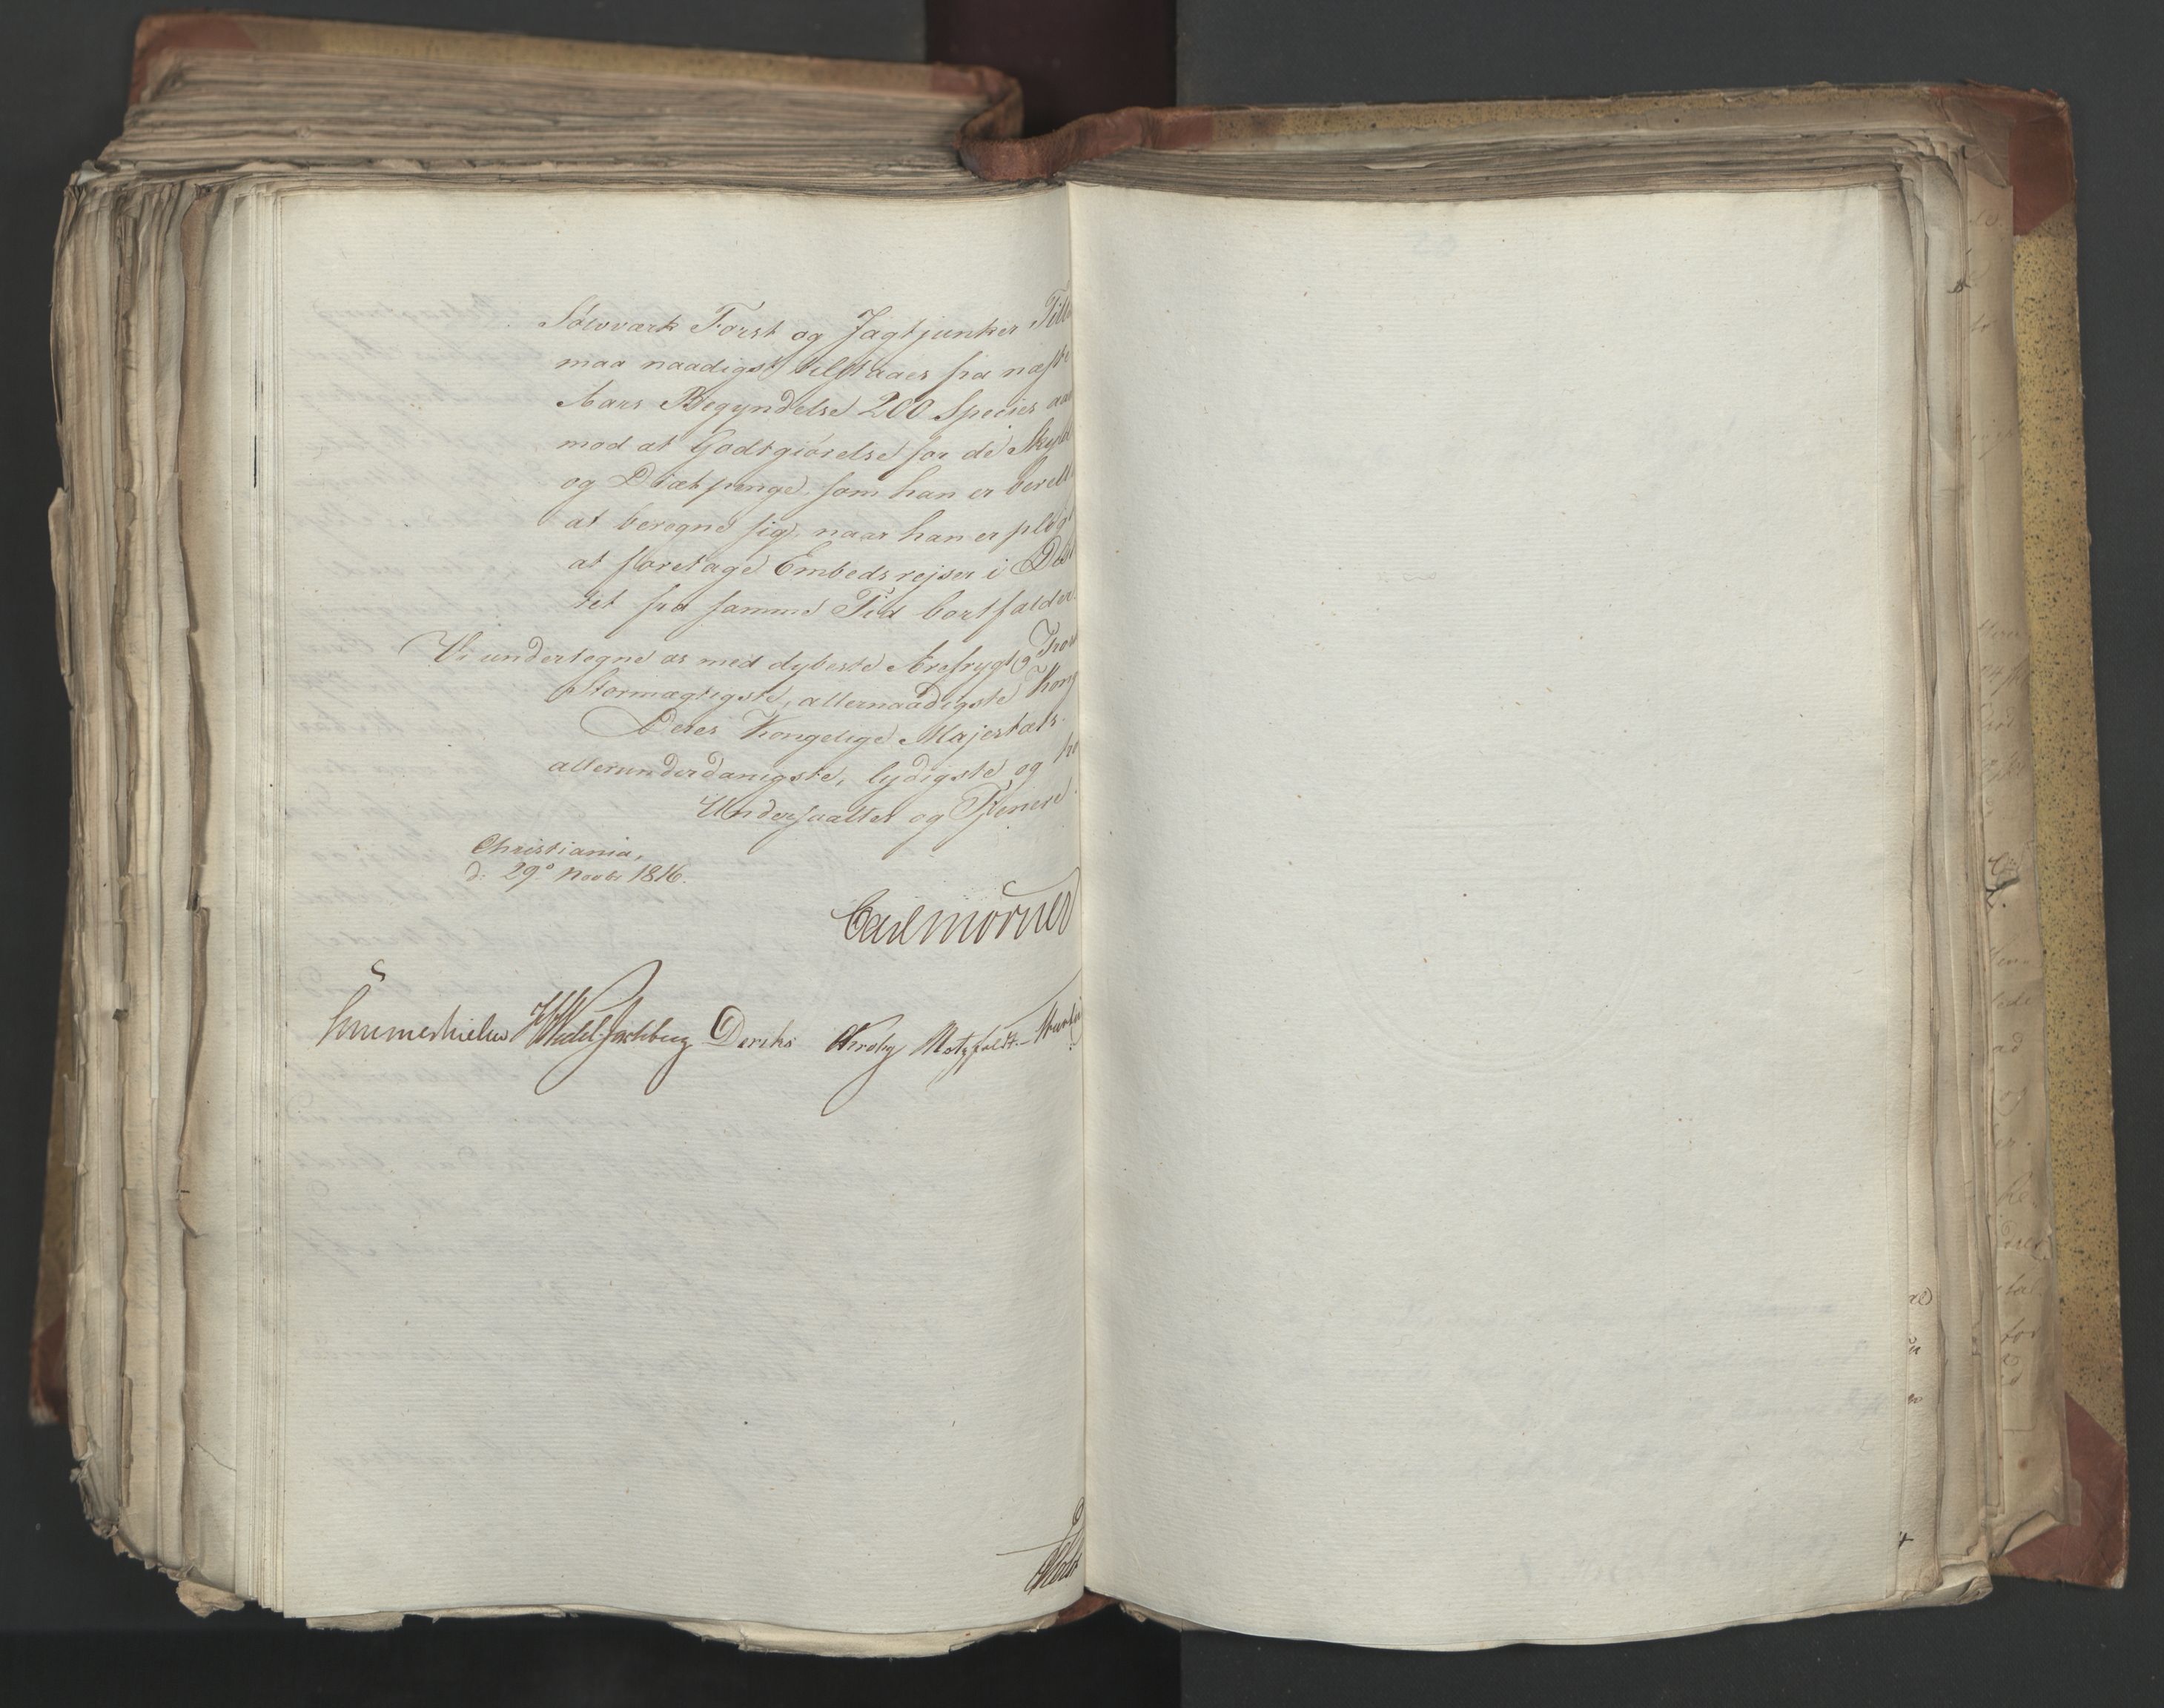 Sølvværk Forst og Jagtjunker
maa naadigst tilstaaes fra næste
Aars Begyndelse 200 Species
mod at Godtgiørelse for de
og Diætpenge, som han er
at beregne sig, naar han er
at foretage Embedsrejser i
tet fra samme Tid bortfalder.
Vi undertegne os med dybeste Ærefrygt
Stormægtigste, allernaadigste
Deres Kongelige Majestæts
allerunderdanigste, lydigste og
Undersaatter og Tjenere
Christiania,
d: 29de Novbr 1816.
Carl Mörner
Sommerhielm HWedel-Jarlsberg Diriks Krohg Motzfeldt
Holst